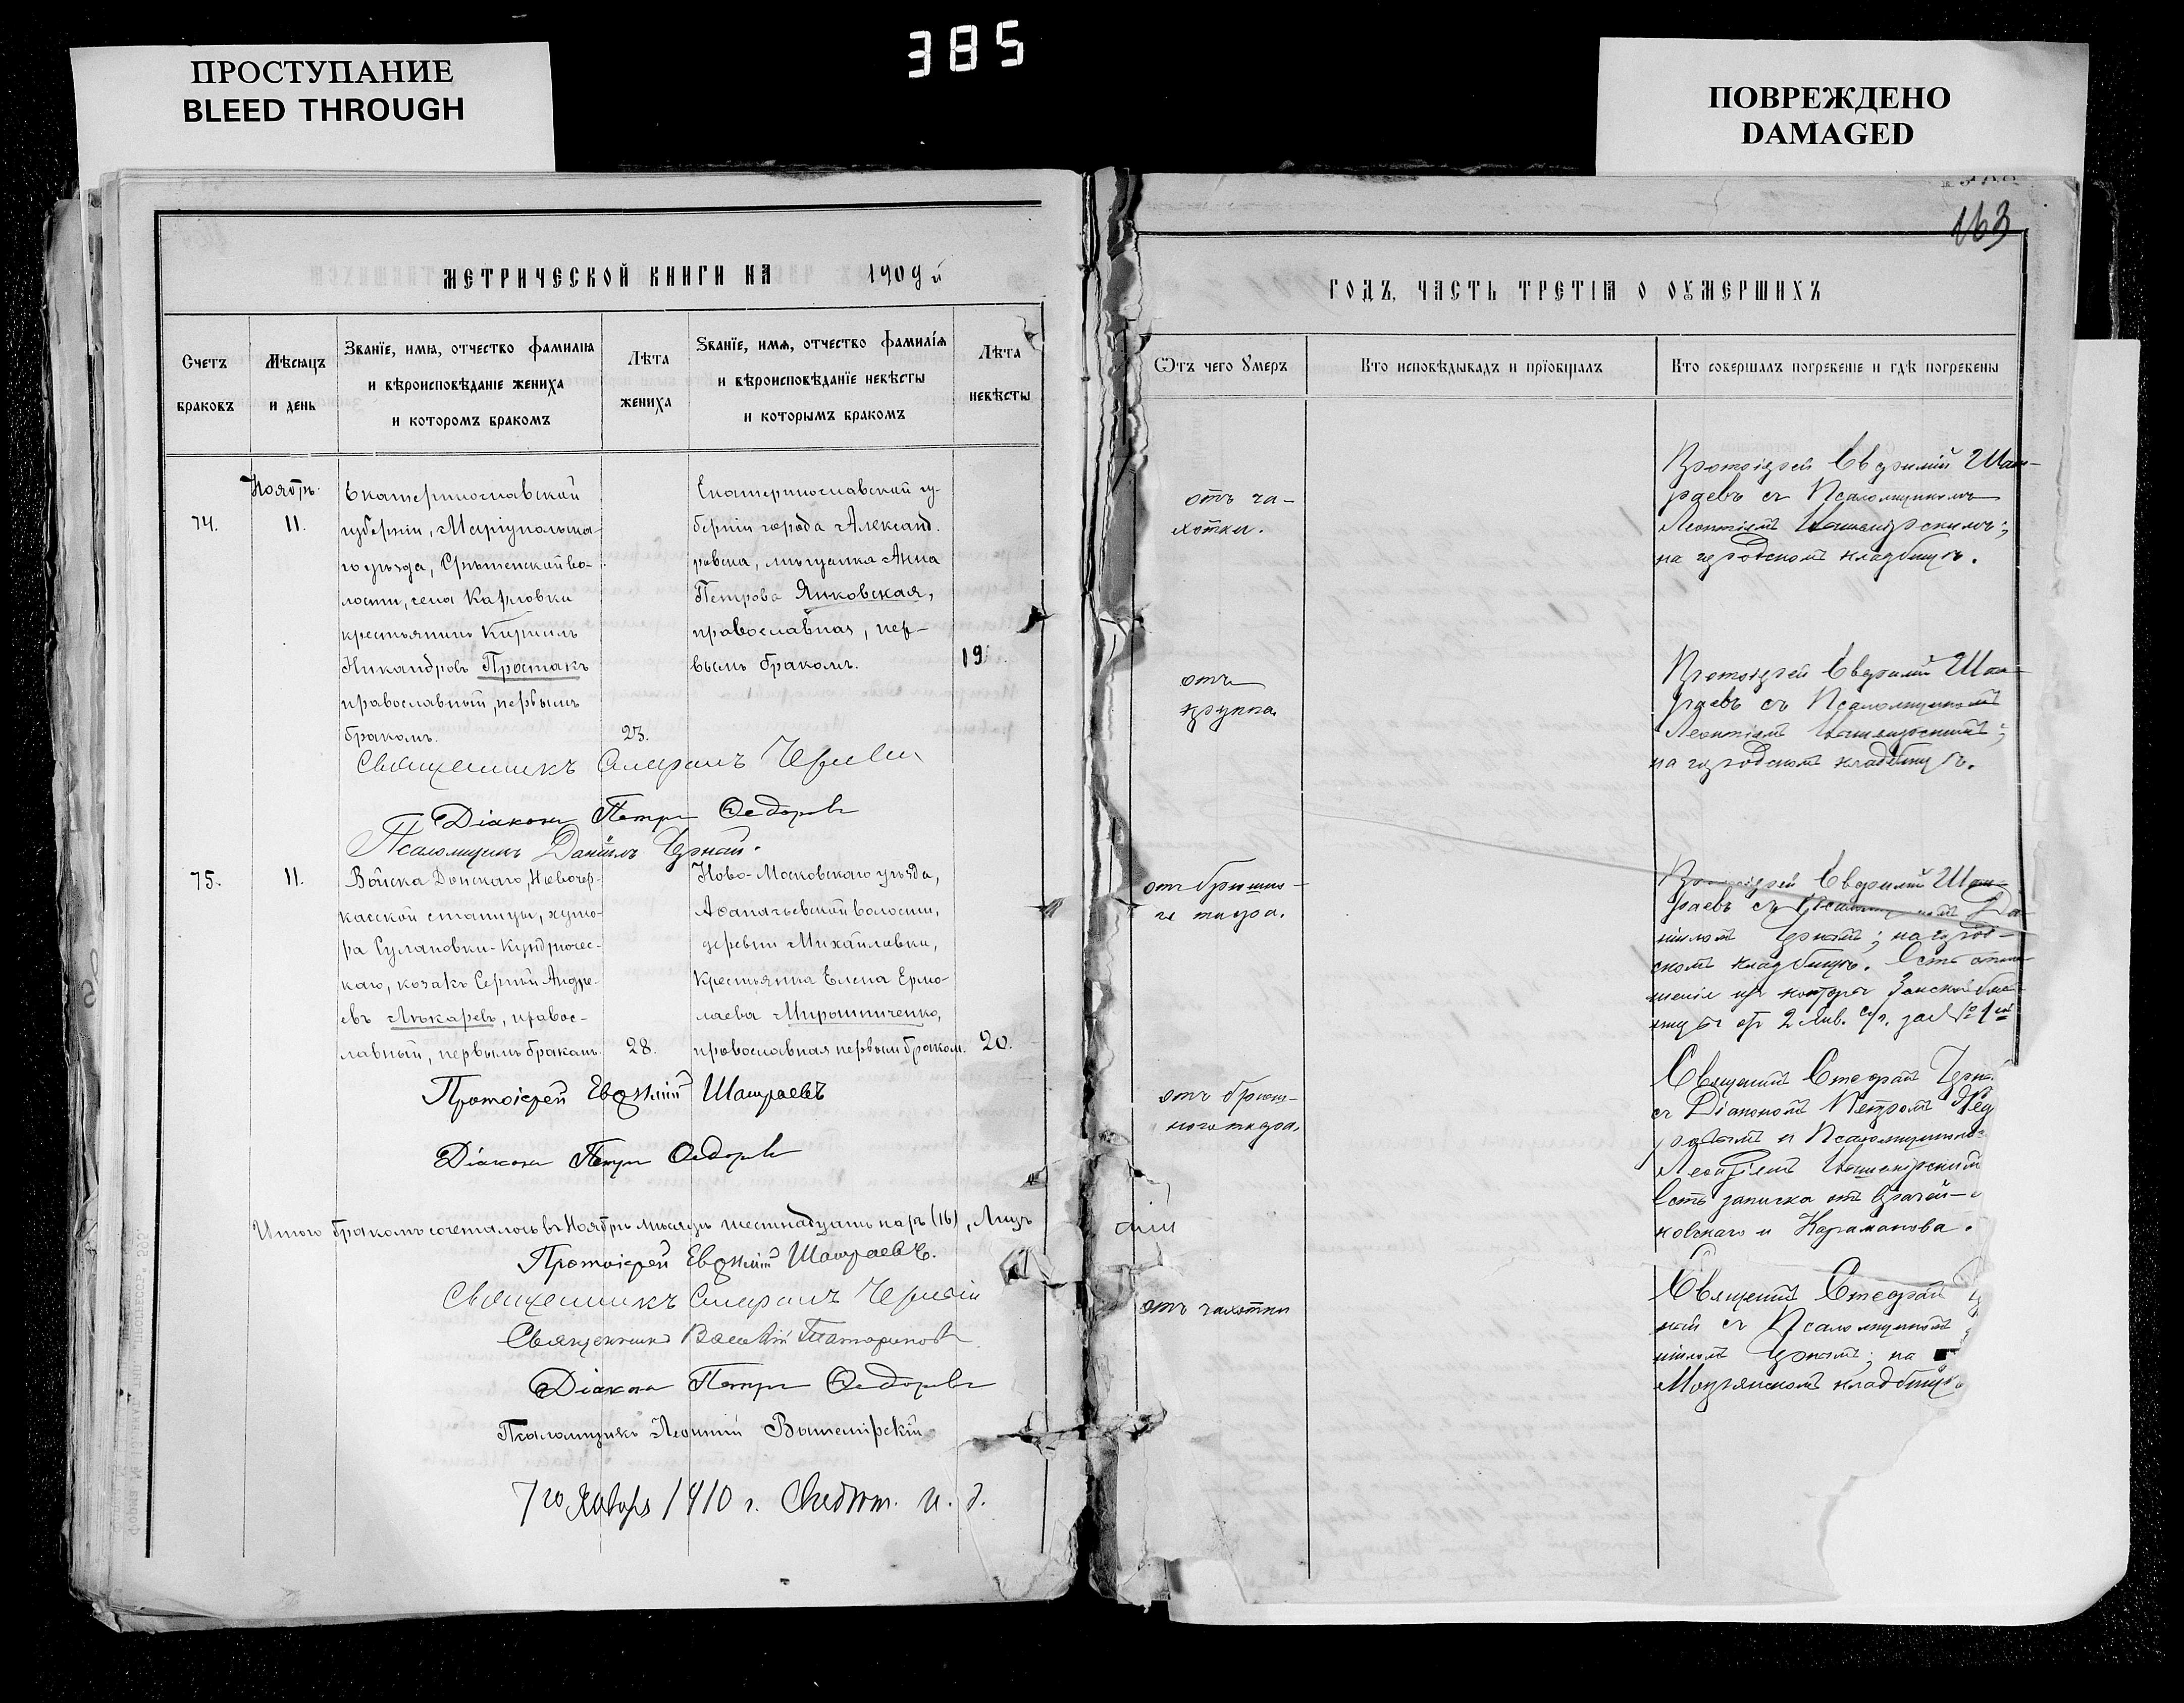 385
ПРОСТУПАНИЕ
BLEED THROUGH
ПОВРЕЖДЕНО
DAMAGED
МЕТРИЧЕСКОЙ КНИГИ НА 1909 й
Счетъ браковъ
Мѣсяцъ и день
Званїе, имя, отчество фамилія
и вѣроисповѣданіе жениха
и которомъ бракомъ
Лѣта жениха
Званїе, имя, отчество фамилїя
и вѣроисповѣданїе невѣсты
и которымъ бракомъ
Лѣта невѣсты
Ноябрь
74.
11.
Екатеринославской
губерніи, Маріупольска-
го уѣзда, Срѣтенской во-
лости, села Карловки
крестьянинъ Кириллъ
Никандровъ Простакъ
православный, первымъ
бракомъ.
23.
Екатеринославской гу-
берніи города Александ-
ровска, мѣщанка Анна
Петрова Янковская,
православная, пер-
вымъ бракомъ.
19.
Священникъ
Діаконъ Петръ Ѳедоровъ
Псаломщикъ Даніилъ Чернай.
75.
11.
Войска Донскаго, Новочер-
касской станицы, хуто-
ра
каго, козакъ Сергѣй Андре-
евъ Лѣкаревъ, правос-
лавный, первымъ бракомъ.
28.
Ново-Московскаго уѣзда,
волости,
деревни Михайловки,
крестьянка Елена Ермо-
лаева Мирошниченко,
православная первым браком.
20.
Протоіерей Евѳимій Шашраевъ
Діаконъ Петръ Ѳедоровъ
Итого бракомъ сочеталось въ Ноябрѣ мѣсяцѣ шестнадцать паръ (16), Лицъ
Протоіерей Евѳимій Шашраевъ.
Священникъ
Священникъ Василій Татариновъ
Діаконъ Петръ Ѳедоровъ
Псаломщикъ Леонтій Вышемірскій
7го Января 1910 г.
163
ГОДЪ, ЧАСТЬ ТРЕТІЯ О ОУМЕРШИХЪ
Ѿтъ чего Умеръ
Кто исповѣдывадъ и прїобщалъ
Кто совершалъ погребеніе и гдѣ погребены
отъ ча-
хотки.
Протоіерей Евѳимій Шаш-
раевъ съ Псаломщикомъ
Леонтіемъ Вышемірскимъ;
на городскомъ кладбищѣ.
отъ
крупа.
Протоіерей Евѳимій Шаш-
раевъ съ Псаломщикомъ
Леонтіемъ Вышемірскимъ;
на городскомъ кладбищѣ.
отъ брюшно-
го тифа.
Протоіерей Евѳимій Шаш-
раевъ съ Псаломщикомъ Да-
ніиломъ Чернаемъ; на город-
скомъ кладбищѣ. Есть отно-
шеніе изъ конторы Земской боль-
ницы отъ 2 Янв. с/г. за № 1 й
отъ брюш-
ного тифа.
Священникъ Стефанъ
съ Діакономъ Петромъ Ѳед
ровымъ и Псаломщикомъ
Леонтіемъ Вышемірскимъ
Есть записка отъ врачей
ковскаго и Караманова.
отъ чахотки
Священникъ Стефанъ
ный съ Псаломщикомъ
ніиломъ Чернаемъ; на
кладбищѣ.